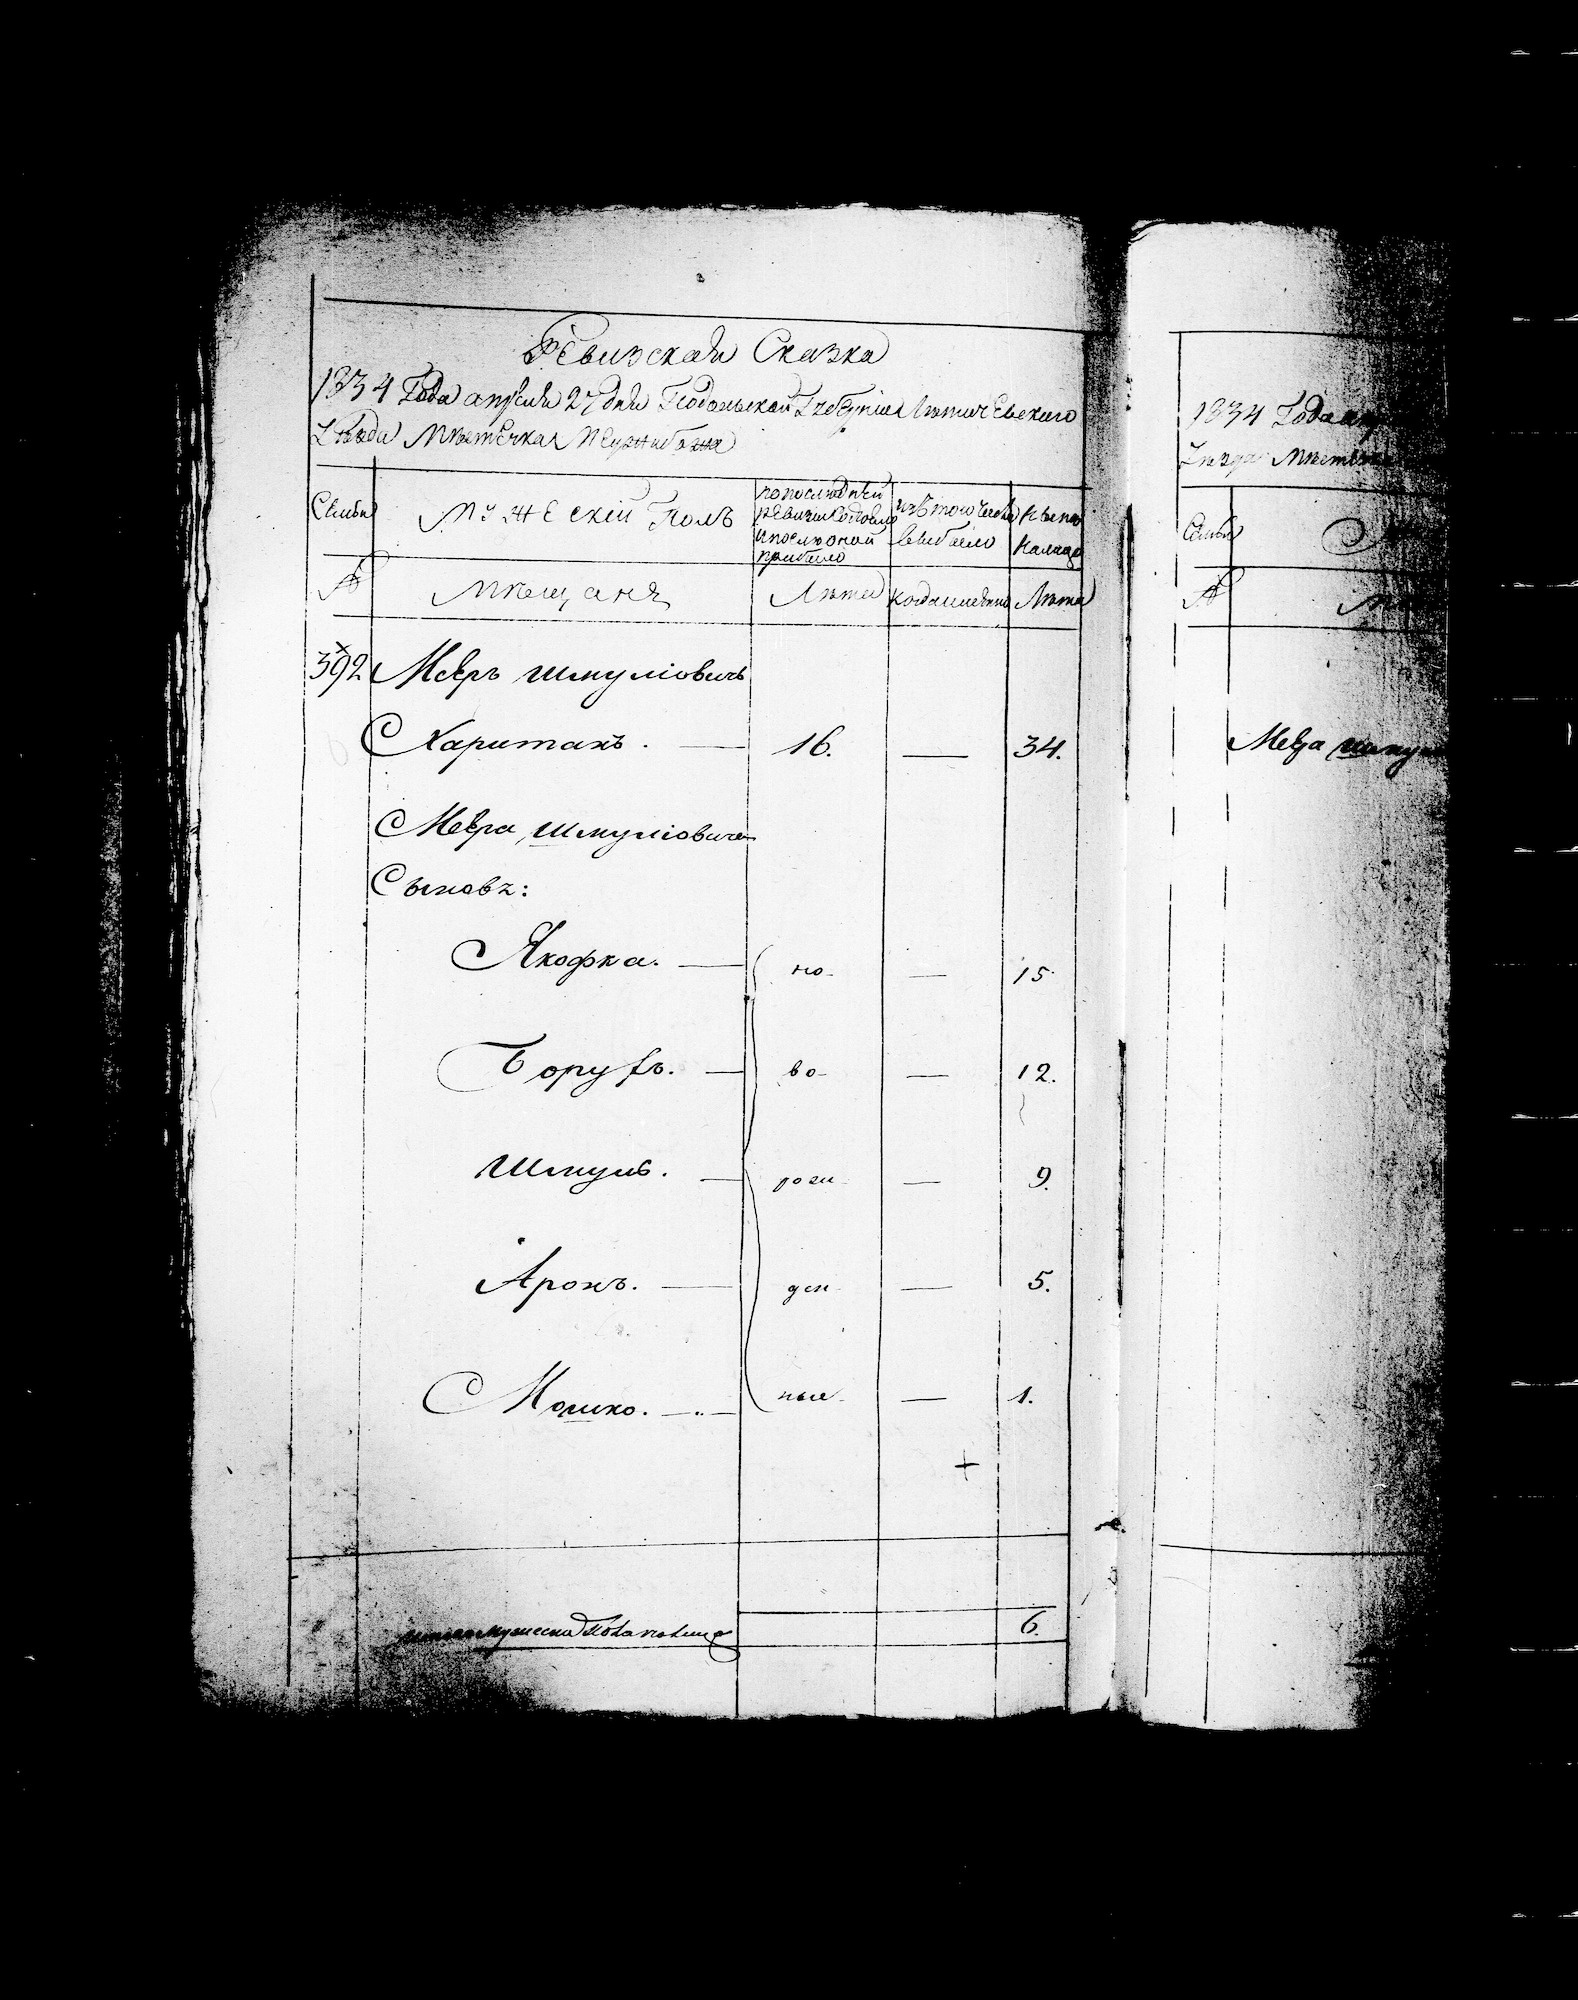 Ревизская Сказка
1834 Года апреля 27 дня Подольской Губернiи Летичевского
Уезда Местечка Межибожа
Семьи
Мужескiй Полъ
по последней
ревизiи состояло
и после оной
прибыло
изъ того числа
выбыло
ныне
на лицо
№
мещане
Лета
когда именно
Лета
392 Мееръ Шмулiовичъ
Хаританъ. — 16. — 34.
Меера Шмулiовича
Сыновъ:
Якофка. — но- — 15
Борухъ. — во- — 12.
Шмуль. — рож- — 9.
Аронъ. — ден- — 5.
Мошко. — ные- — 1.
+
итого мужеска Пола наличнаго 6.
1834 Года
Уезда Мест
Семьи
№
Меера Шму